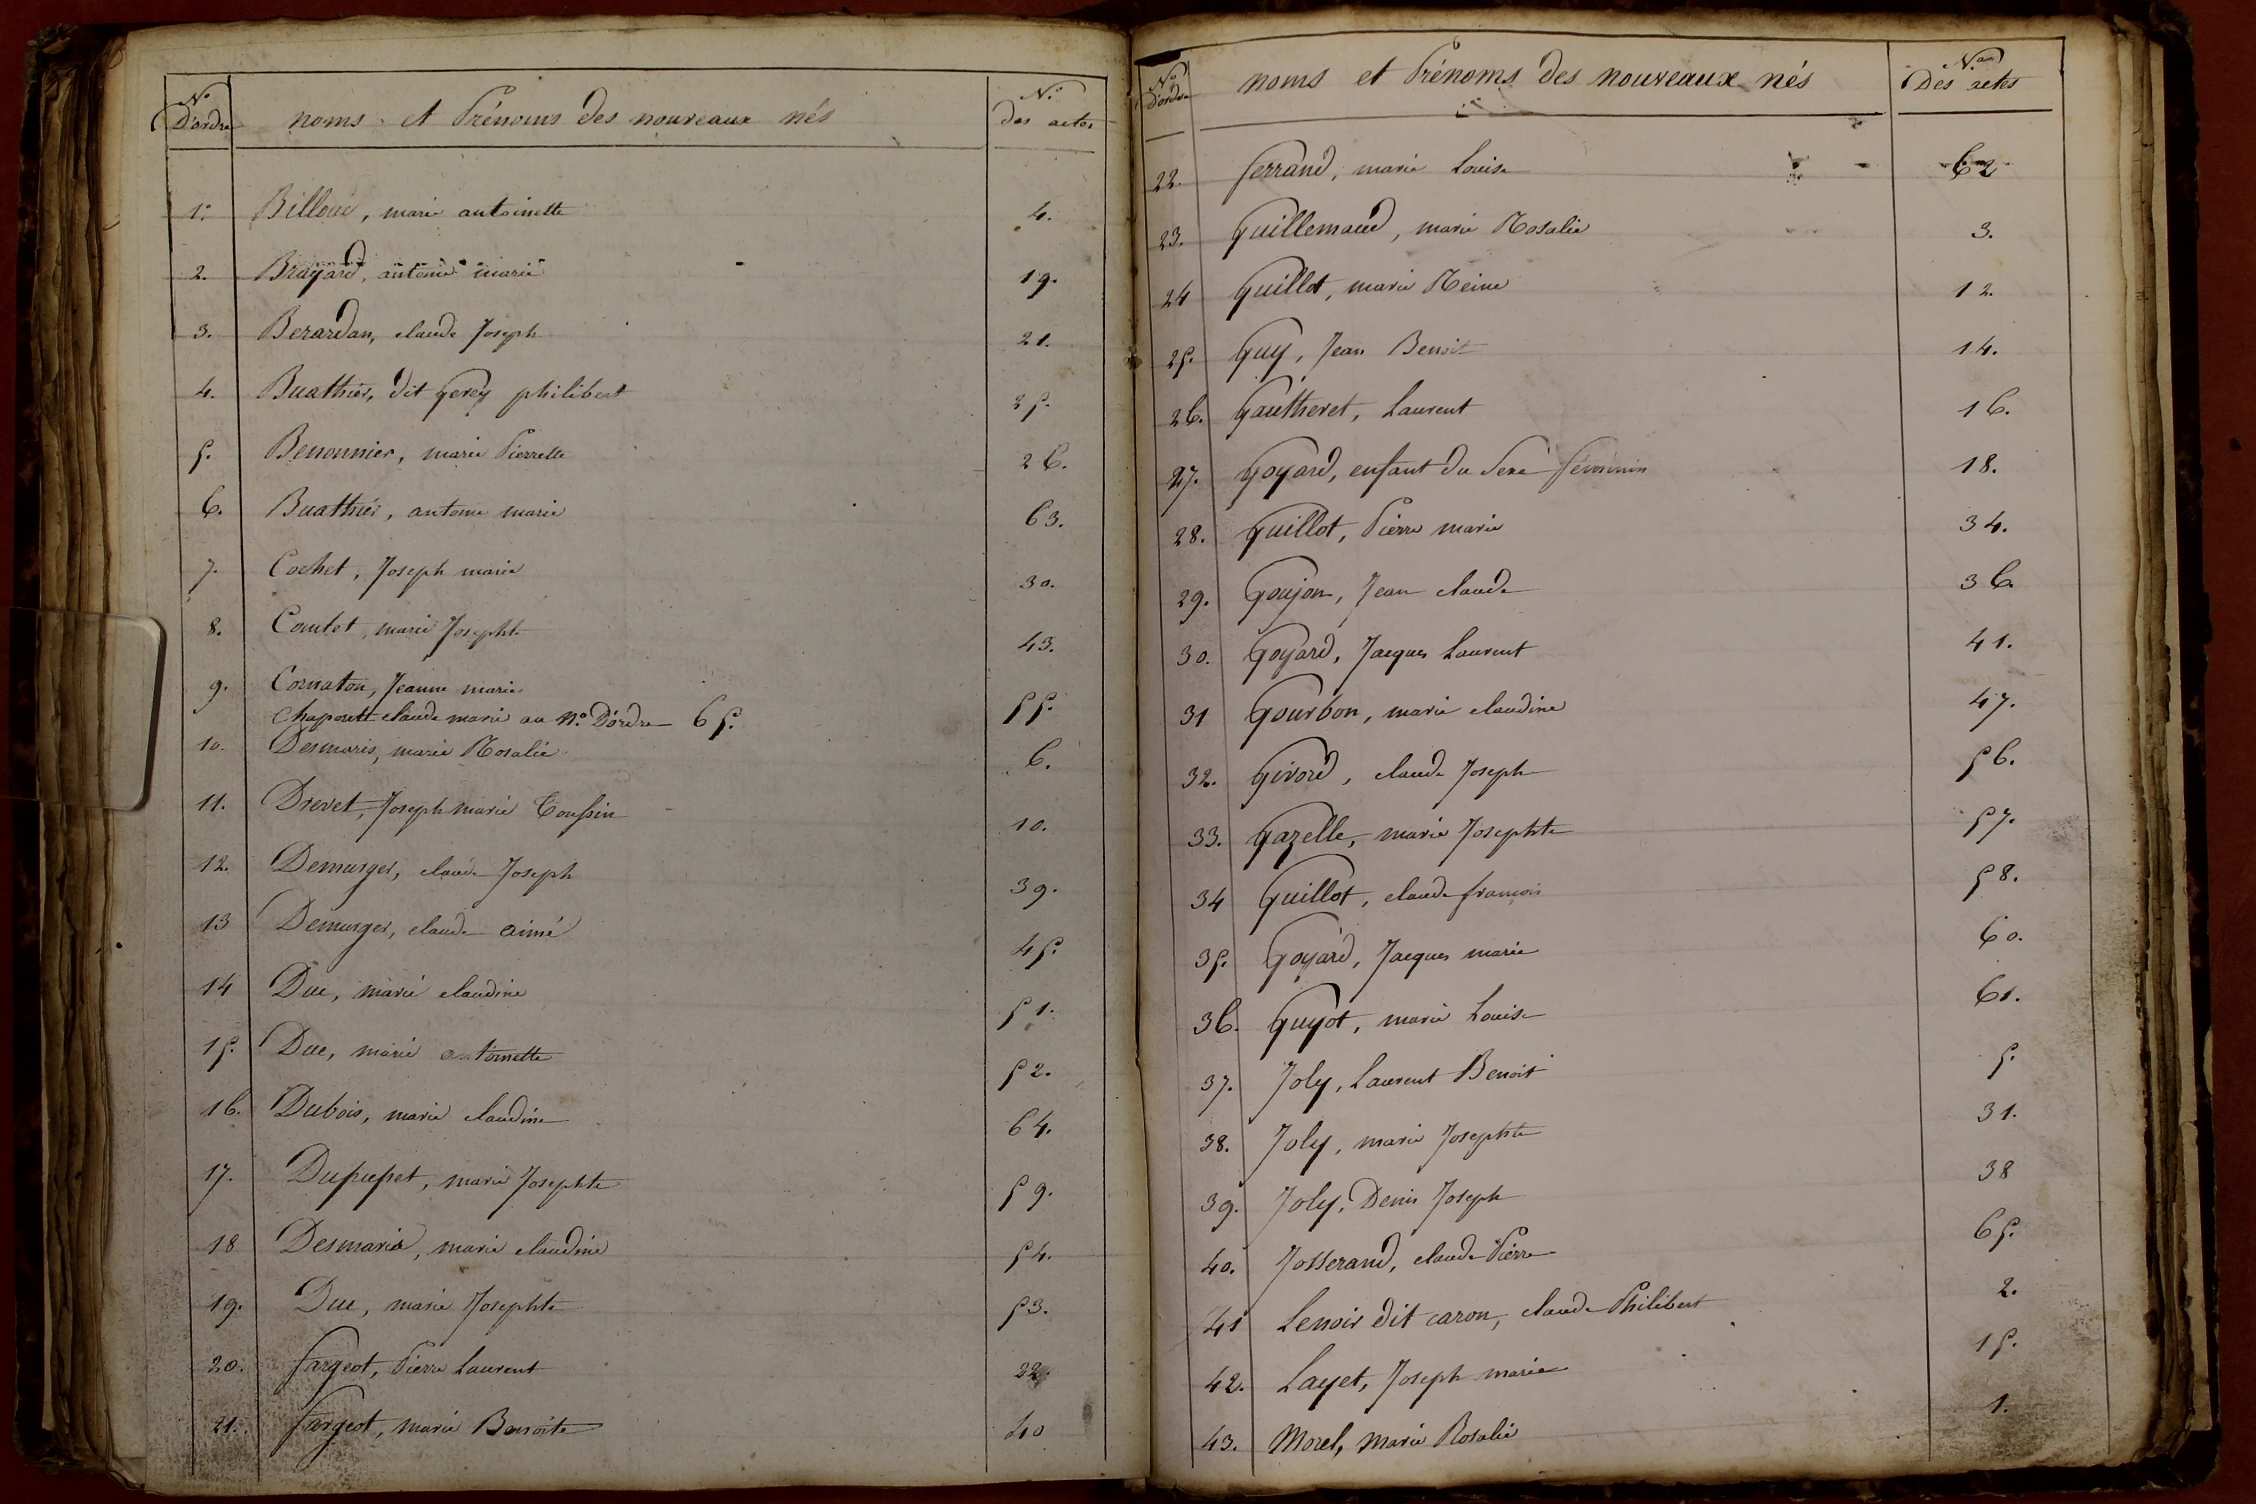 N.o D'ordre noms et Prénoms des nouveaux nés N.o des actes
1. Billoud, marie antoinette 4.
2. Brayard, antoine marie 19.
3. Berardan, claude Joseph 21.
4. Buathier, dit gerey philibert 25.
5. Benonnier, marie Pierrette 26.
6. Buathier, antoine marie 63.
7. Cochet, Joseph marie 30.
8. Comtet, marie Josephte 43.
9. Cornaton, Jeanne marie 55.
Chaponett claude marie au n.o D'ordre 65.
10. Desmaris, marie Rosalie 6.
11. Drevet, Joseph marie Toussin 10.
12. Demurger, claude Joseph 39.
13 Demurger, claude aimé 45.
14 Duc, marie claudine 51.
15. Duc, marie antoinette 52.
16. Dubois, marie claudine 64.
17. Dupupet, marie Josephte 59.
18 Desmaris, marie claudine 54.
19. Duc, marie Josephte 53.
20. fargeot, Pierre Laurent 22.
21. fargeot, marie Benoite 40
N.o D'ordre noms et Prénoms des nouveaux nés N.os Des actes
22. ferrand, marie Louise 62
23. Guillemaud, marie Rosalie 3.
24 Guillot, marie Reine 12.
25. Guy, Jean Benoit 14.
26. Gautheret, Laurent 16.
27. Goyard, enfant du sexe féminin 18.
28. Guillot, Pierre marie 34.
29. Goujon, Jean claude 36.
30. Goyard, Jacques Laurent 41.
31 Gourbon, marie claudine 47.
32. Givord, claude Joseph 56.
33. Gazelle, marie Josephte 57.
34 Guillot, claude françois 58.
35. Goyard, Jacques marie 60.
36. Guyot, marie Louise 61.
37. Joly, Laurent Benoit 5.
38. Joly, marie Josephte 31.
39. Joly, Denis Joseph 38
40. Josserand, claude Pierre 65.
41 Lenoir dit caron, claude Philibert 2.
42. Layet, Joseph marie 15.
43. Morel, Marie Rosalie 1.